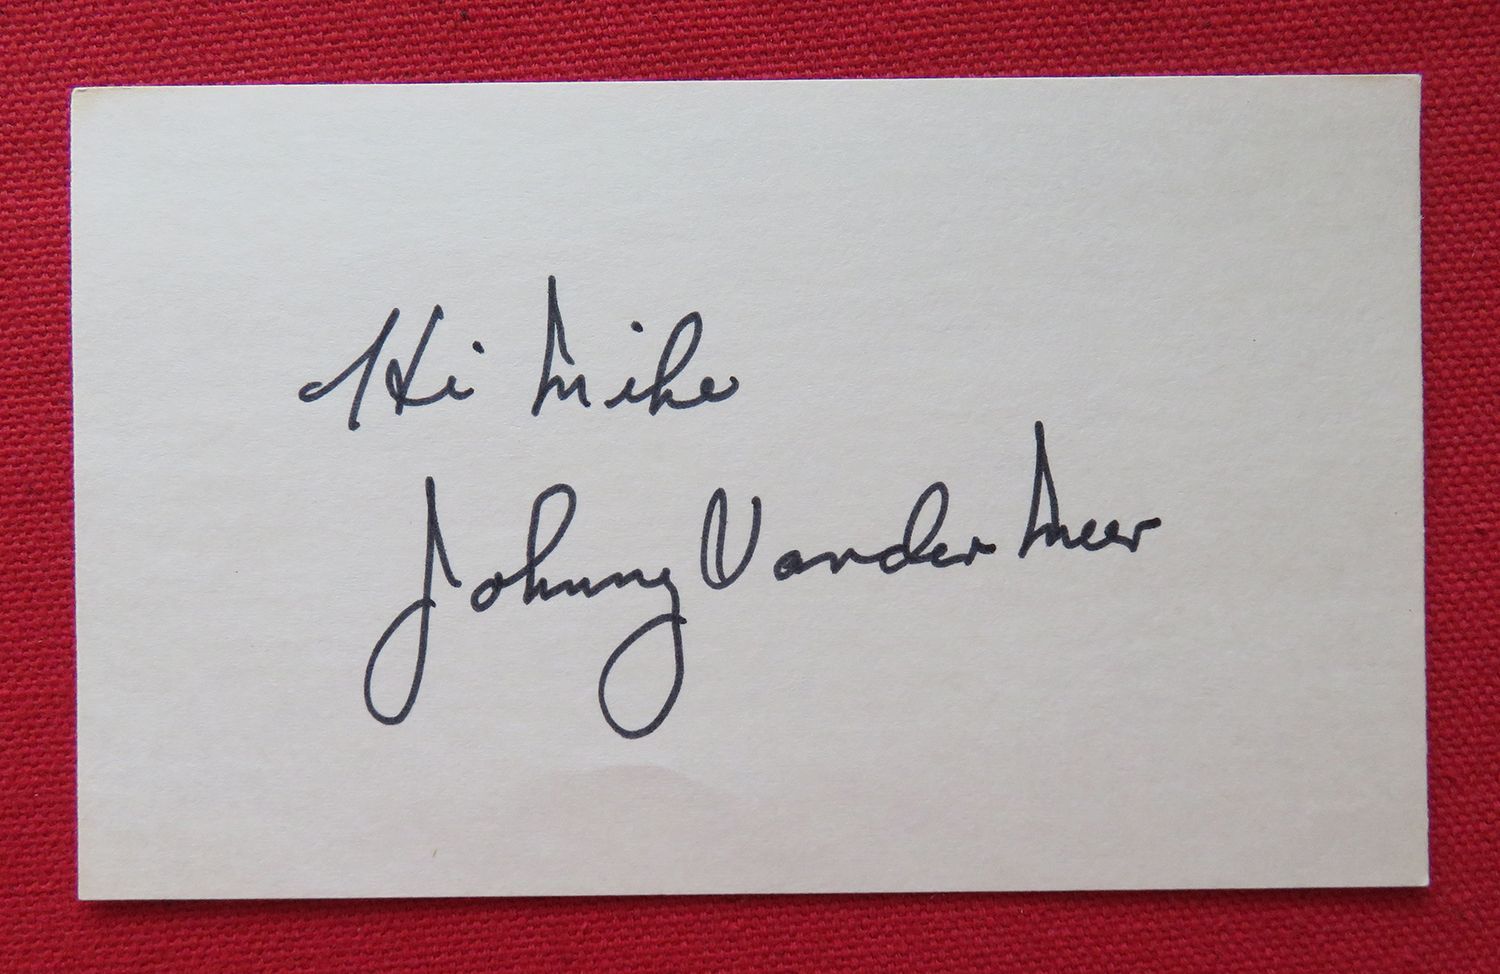 Hi Mike
Johnny Vander Meer